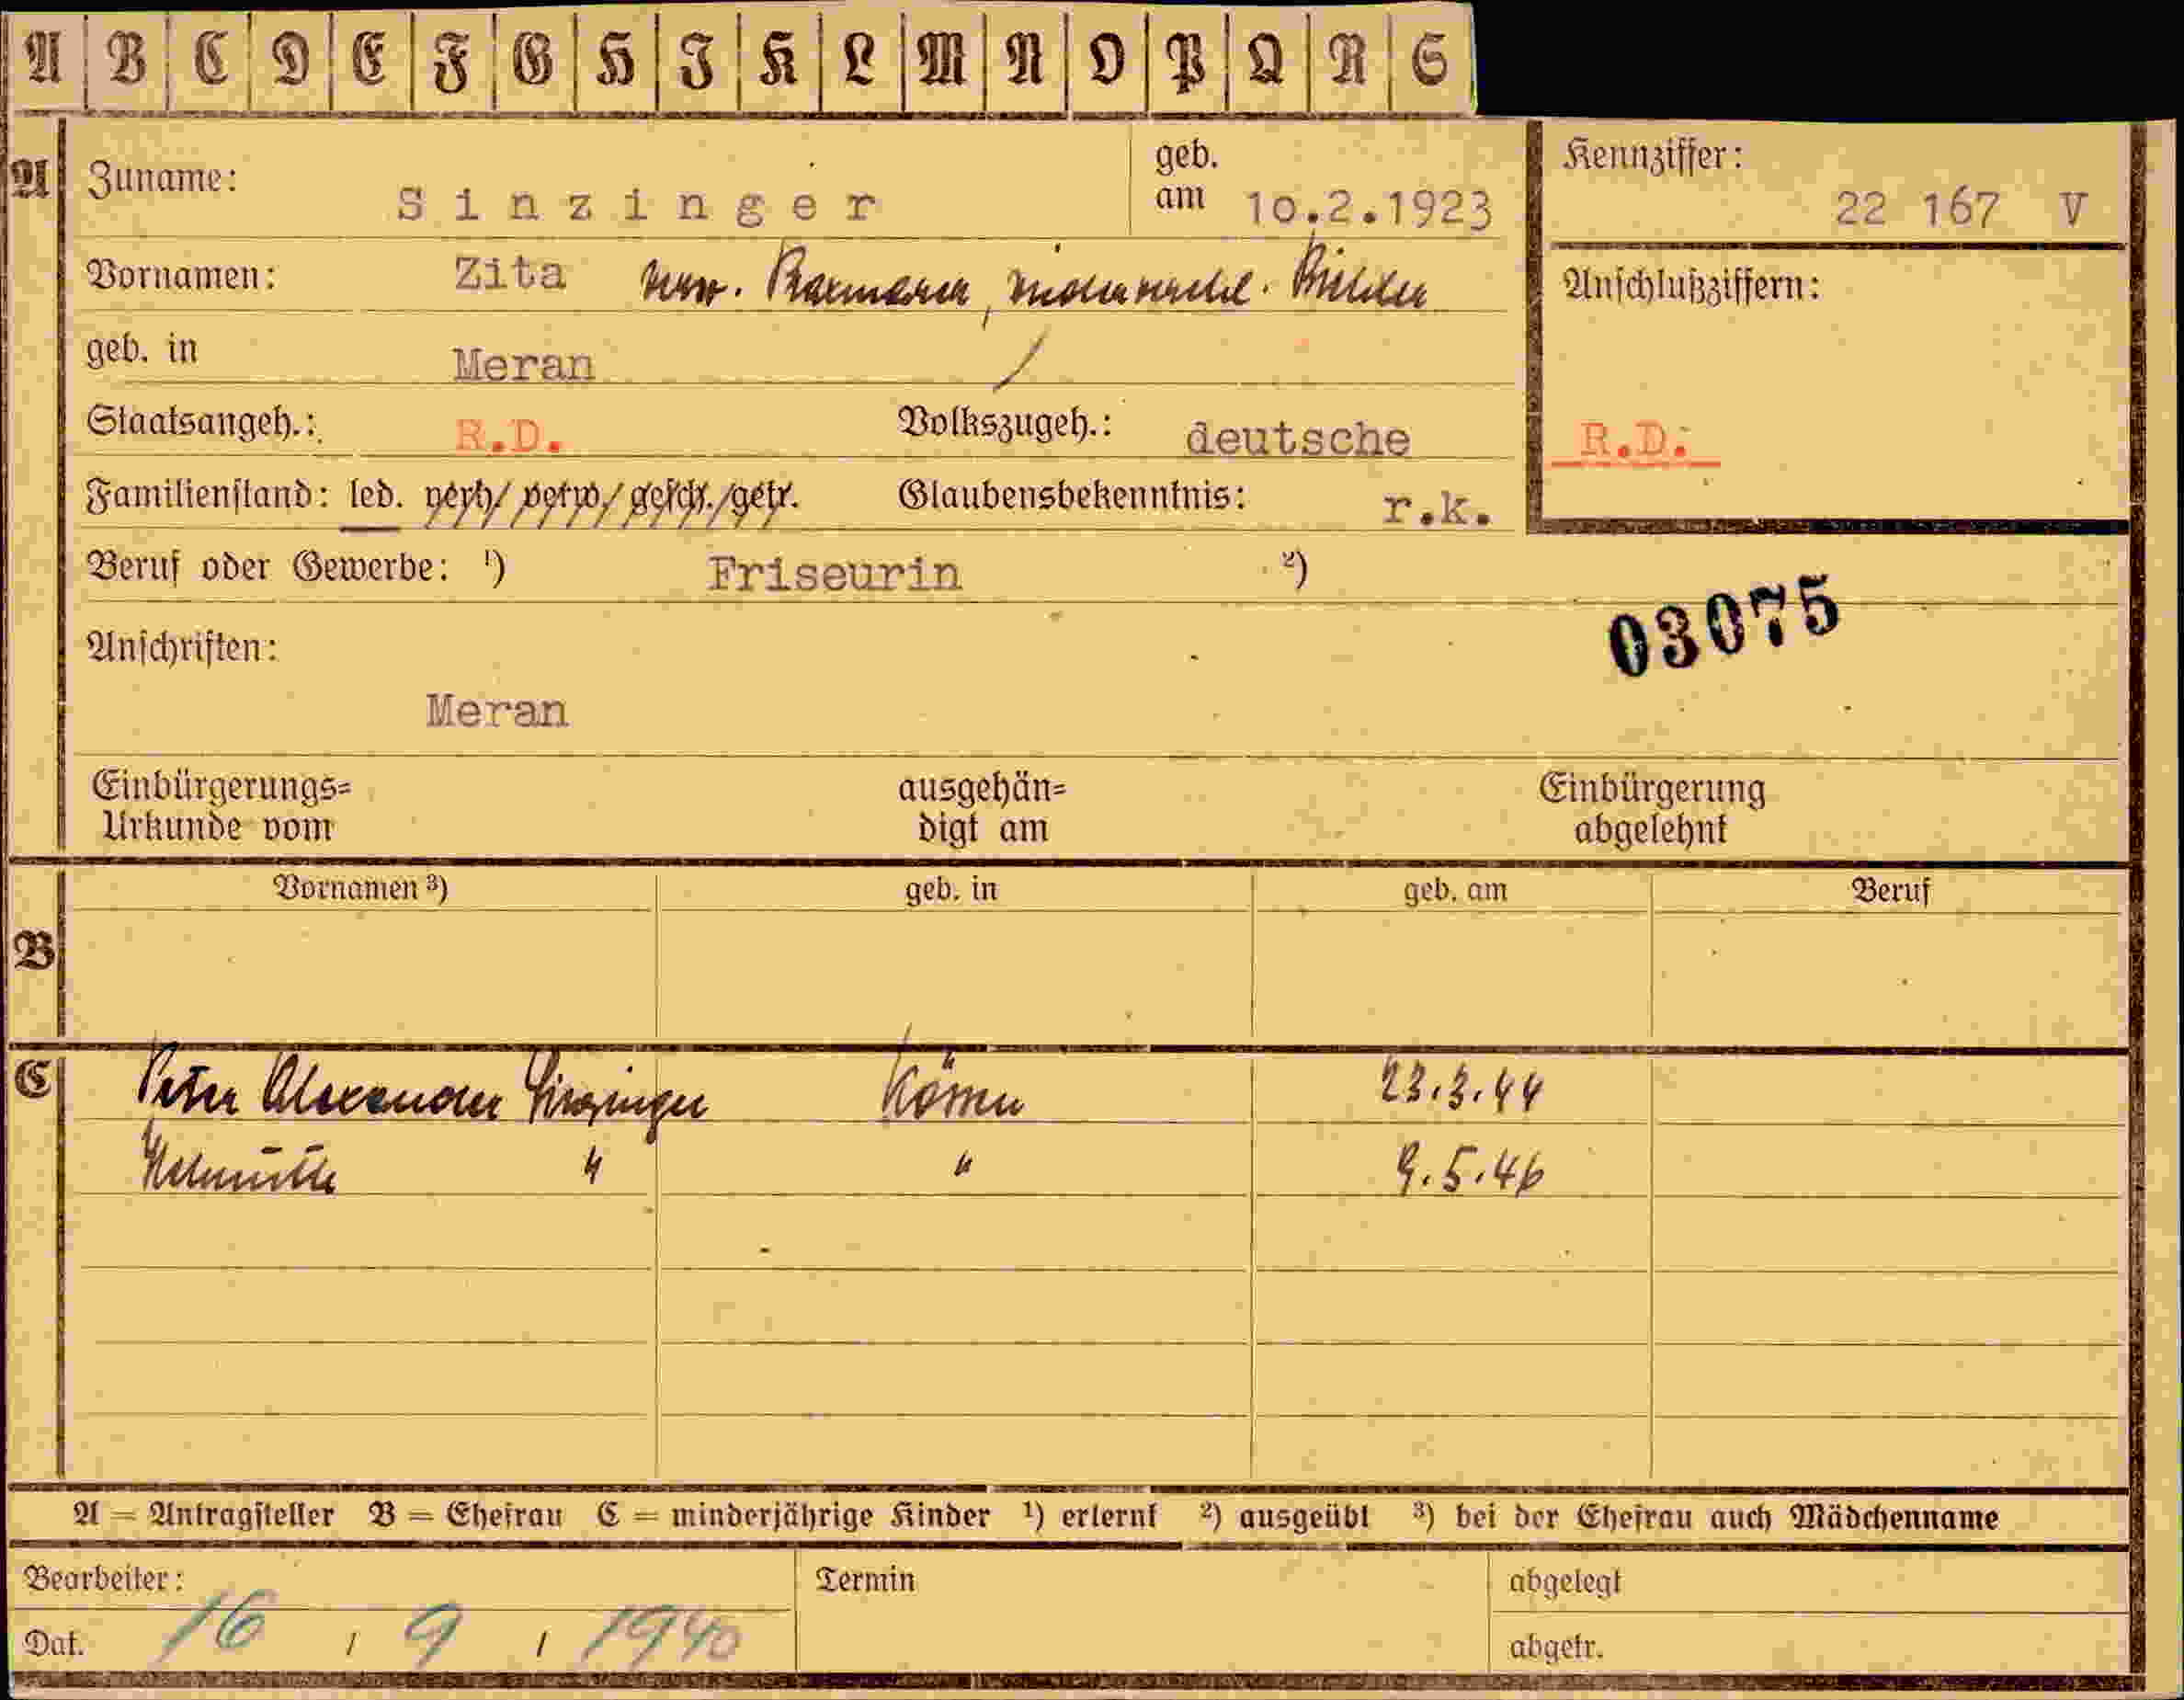 A B C D E F G H I K L M N O P Q R S
A Zuname: Sinzinger geb. am 10.2.1923 Kennziffer: 22 167 V
Vornamen: Zita verw. wiederverehel. Anschlußziffern:
geb. in Meran
Staatsangeh.: R.D. Volkszugeh.: deutsche R.D.
Familienstand: led. verh/ verw/ gesch./getr. Glaubensbekenntnis: r.k.
Beruf oder Gewerbe: ¹) Friseurin ²)
03075
Anschriften:
Meran
Einbürgerungs= ausgehän= Einbürgerung
Urkunde vom digt am abgelehnt
Vornamen ³) geb. in geb. am Beruf
B
C Peter Alexander Sinzinger 23.3.44
Helmuth " " 9.5.46
A = Antragsteller B = Ehefrau C = minderjährige Kinder ¹) erlernt ²) ausgeübt ³) bei der Ehefrau auch Mädchenname
Bearbeiter: Termin abgelegt
Dat. 16 / 9 / 1940 abgetr.